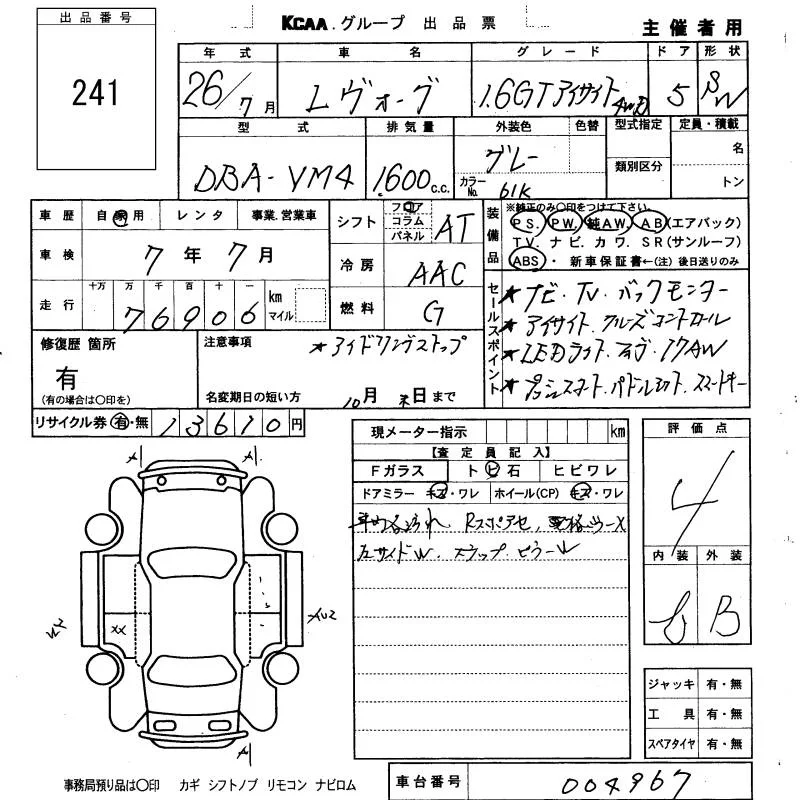 出品番号
241
KCAA.グループ 出品票
主催者用
年式 車名 グレード ドア 形状
26/7月 レヴォーグ 1.6GTアイサイト 4WD 5 SW
型式 排気量 外装色 色替 型式指定 定員・積載
DBA-VM4 1.600c.c. グレー 名
カラーNo. 61K 類別区分 トン
車歴 自家用 レンタ 事業.営業車
シフト フロア コラム パネル AT
装備品
※純正のみ〇印をつけて下さい。
PS. PW. 純AW. AB(エアバック)
TV. ナビ. カワ. SR(サンルーフ)
ABS・ 新車保証書←(注)後日送りのみ
車検 7年7月
冷房 AAC
走行 十万 万 千 百 十 一
76906 km マイル
燃料 G
セールスポイント
★ナビ.TV.バックモニター
★アイサイト.クルーズコントロール
★LEDライト. 17AW
★プッシュスタート.パドルシフト.スマートキー
修復歴 箇所
有
(有の場合は〇印を)
注意事項
★アイドリングストップ
名変期日の短い方 10月末日まで
リサイクル券 有・無 13610円
現メーター指示 km
【査定員記入】
Fガラス トビ石 ヒビワレ
ドアミラー キズ・ワレ ホイール(CP) キズ・ワレ
評価点
4
内装 外装
B
XX
ジャッキ 有・無
工具 有・無
スペアタイヤ 有・無
事務局預り品は〇印 カギ シフトノブ リモコン ナビロム
車台番号 004967